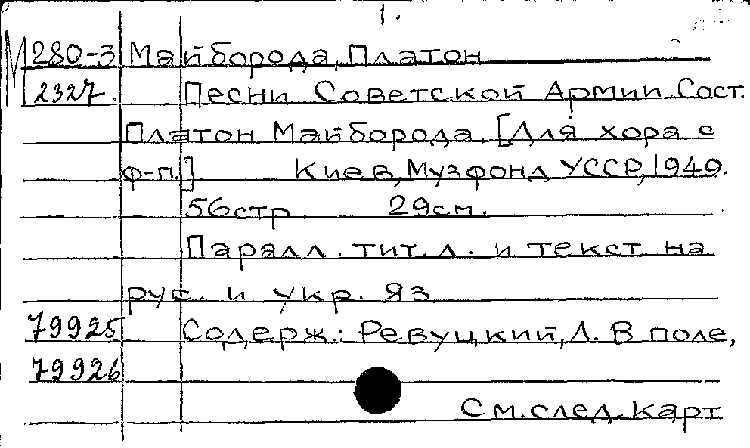 1.
М 280-3 Майборода, Платон
2327. Песни Советской Армии Сост.
Платон Майборода. [Для хора с
ф-п.] Киев, Музфонд УССР, 1949.
56 стр 29 см.
Паралл. тит. л. и текст на
рус. и укр. яз
79925 Содерж.: Ревуцкий, Л. В поле,
79926
См. след. карт